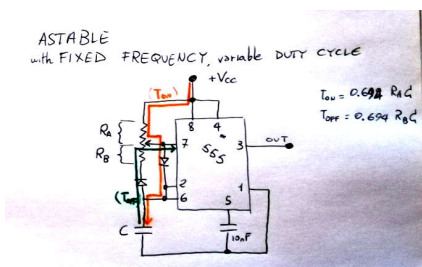 ASTABLE
with FIXED FREQUENCY, variable DUTY CYCLE
+Vcc
(TON)
TON = 0.694 RAC
TOFF = 0.694 RBC
RA
RB
8
4
7
555
3
OUT
2
6
1
5
C
10nF